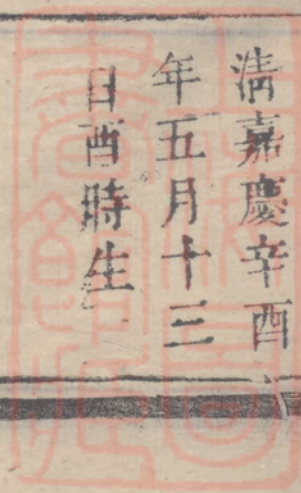 清嘉慶辛酉
年五月十三
日酉時生